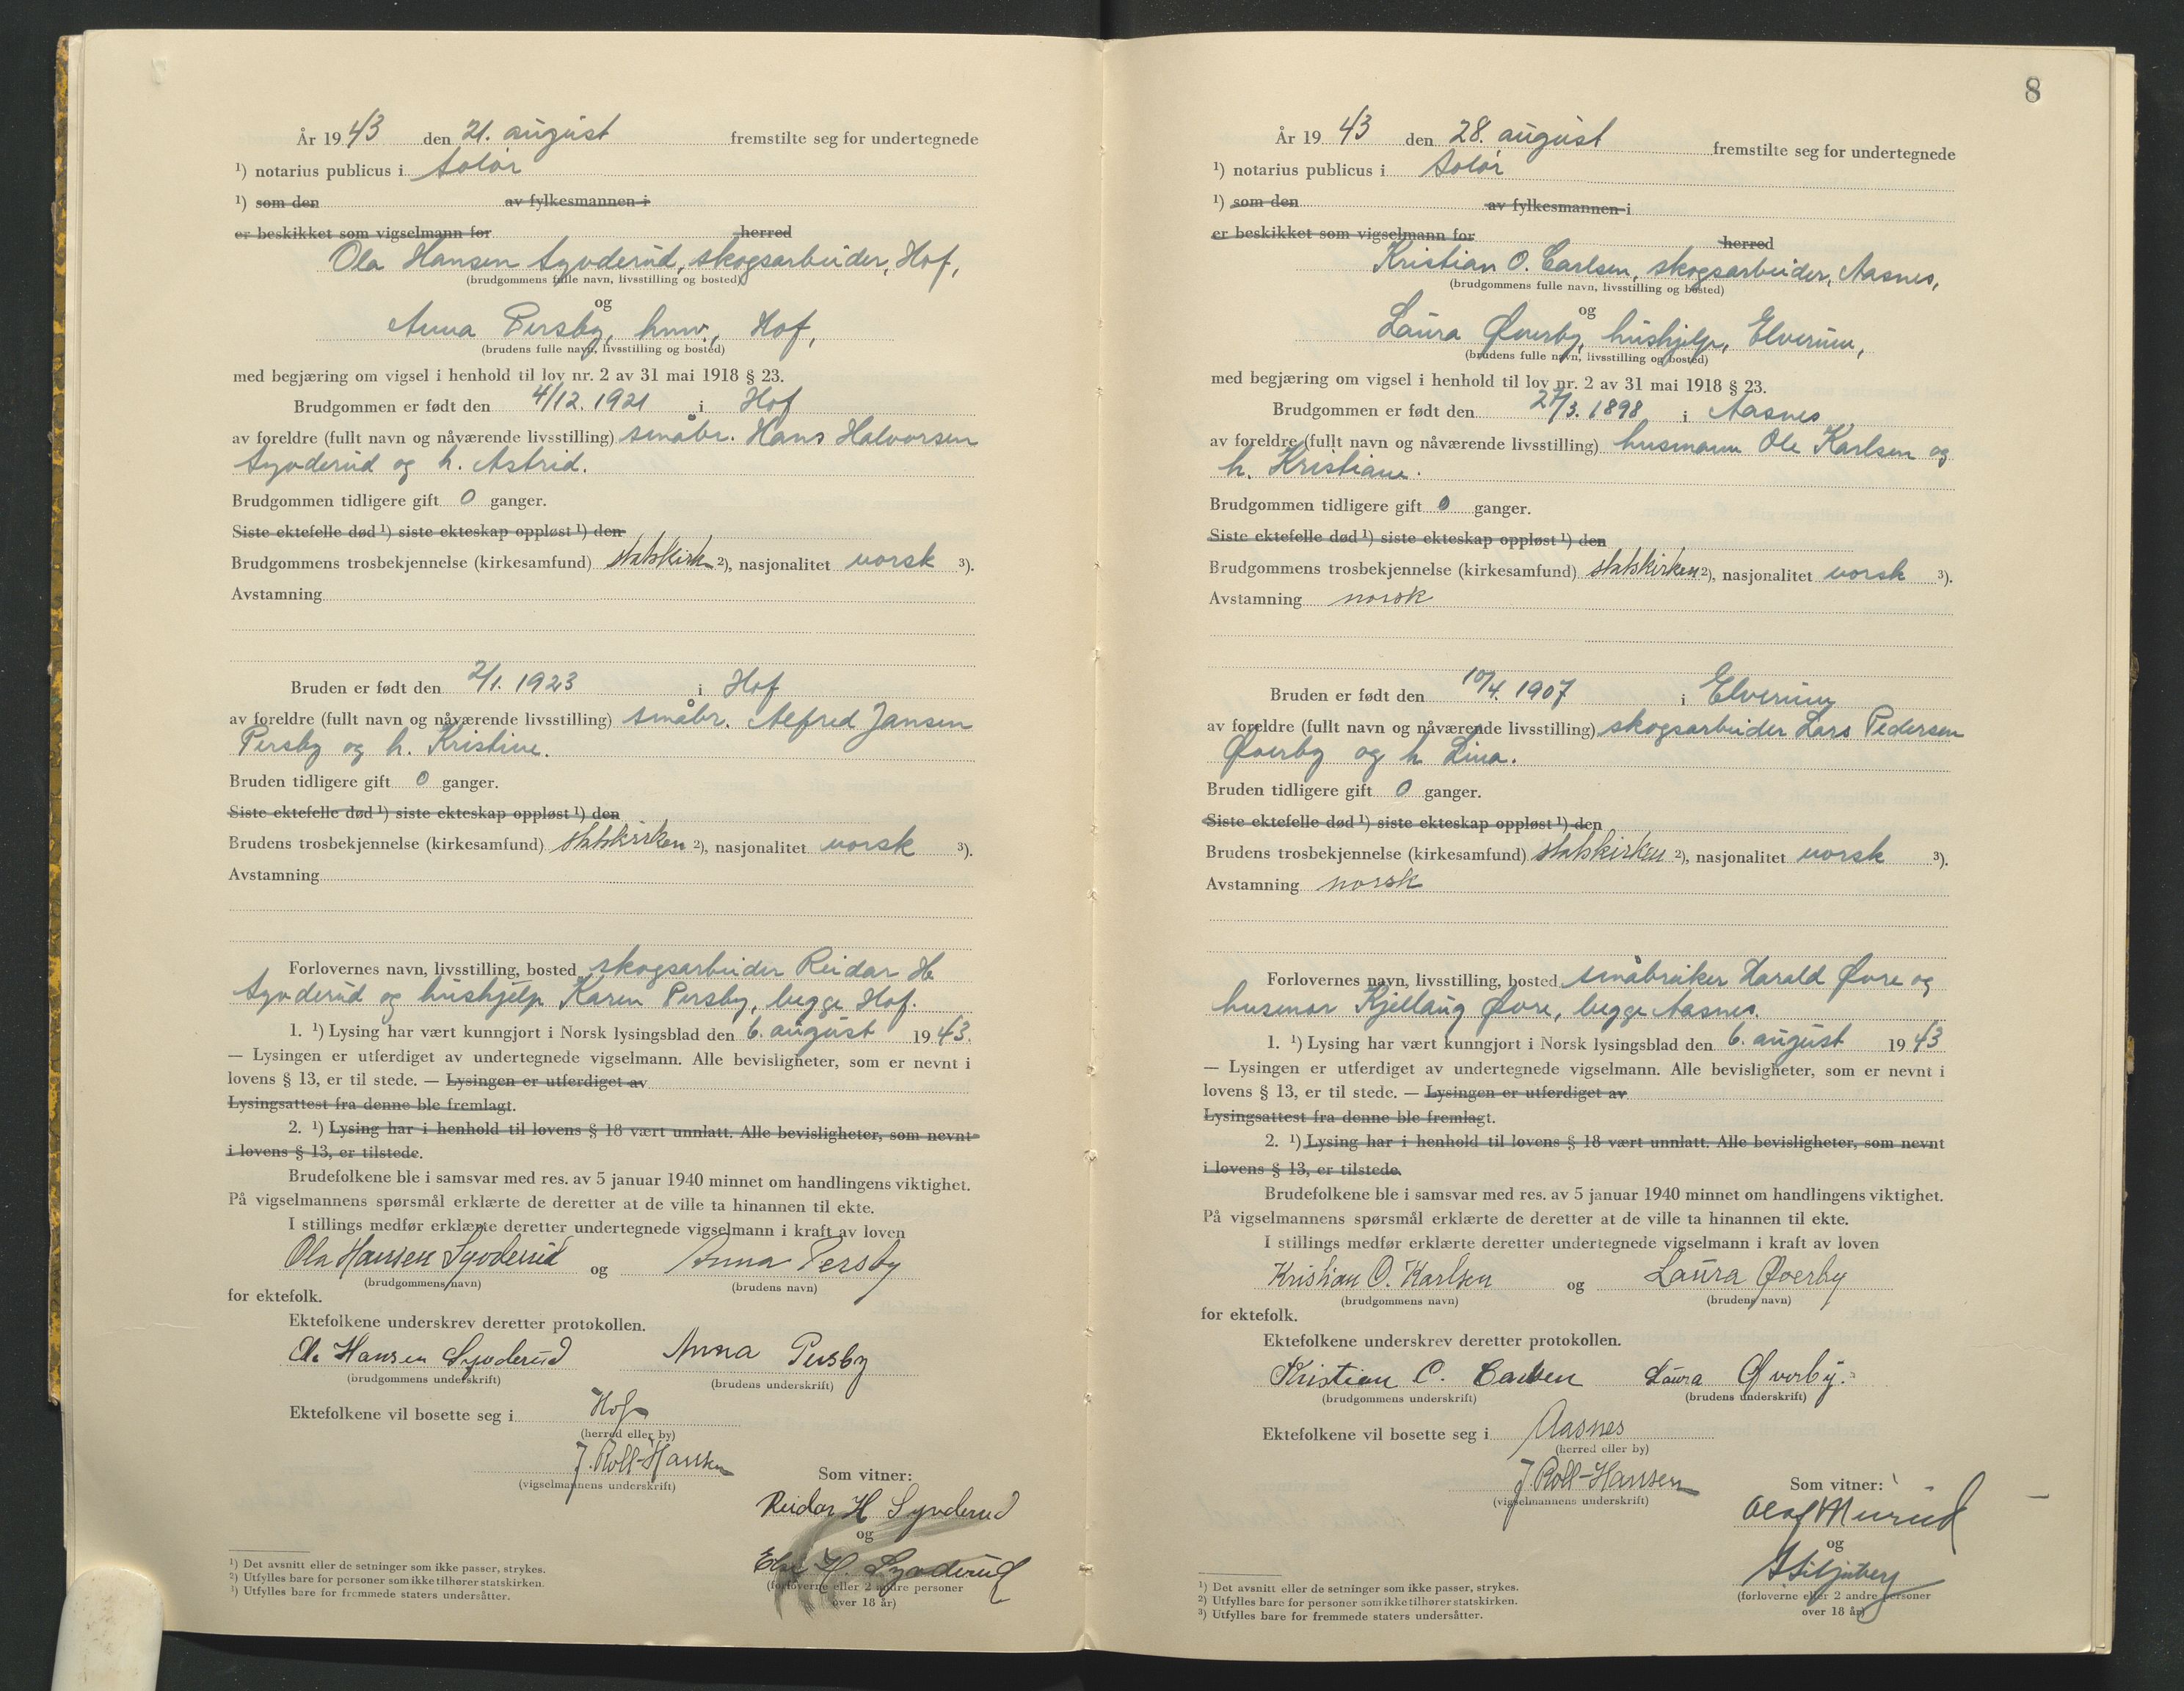 År 1943 den 21. august fremstilte seg for undertegnede
¹) notarius publicus i Solør
¹) som den av fylkesmannen i
er beskikket som vigselmann for herred
Ola Hansen Syvderud, skogsarbeider, Hof,
(brudgommens fulle navn, livsstilling og bosted)
og
Anna Persby, hmv., Hof,
(brudens fulle navn, livsstilling og bosted)
med begjæring om vigsel i henhold til lov nr. 2 av 31 mai 1918 § 23.
Brudgommen er født den 4/12. 1921 i Hof
av foreldre (fullt navn og nåværende livsstilling) småbr. Hans Halvorsen
Syvderud og h. Astrid.
Brudgommen tidligere gift 0 ganger.
Siste ektefelle død ¹) siste ekteskap oppløst ¹) den
Brudgommens trosbekjennelse (kirkesamfund) statskirken ²), nasjonalitet norsk ³).
Avstamning
Bruden er født den 2/1. 1923 i Hof
av foreldre (fullt navn og nåværende livsstilling) småbr. Alfred Jansen
Persby og h. Kristine.
Bruden tidligere gift 0 ganger.
Siste ektefelle død ¹) siste ekteskap oppløst ¹) den
Brudens trosbekjennelse (kirkesamfund) statskirken ²), nasjonalitet norsk ³).
Avstamning
Forlovernes navn, livsstilling, bosted skogsarbeider Reidar H
Syvderud og hushjelp Karen Persby, begge Hof.
1. ¹) Lysing har vært kunngjort i Norsk lysingsblad den 6. august 1943.
— Lysingen er utferdiget av undertegnede vigselmann. Alle bevisligheter, som er nevnt i
lovens § 13, er til stede. — Lysingen er utferdiget av
Lysingsattest fra denne ble fremlagt.
2. ¹) Lysing har i henhold til lovens § 18 vært unnlatt. Alle bevisligheter, som nevnt
i lovens § 13, er tilstede.
Brudefolkene ble i samsvar med res. av 5 januar 1940 minnet om handlingens viktighet.
På vigselmannens spørsmål erklærte de deretter at de ville ta hinannen til ekte.
I stillings medfør erklærte deretter undertegnede vigselmann i kraft av loven
Ola Hansen Syvderud og Anna Persby
(brudgommens navn) (brudens navn)
for ektefolk.
Ektefolkene underskrev deretter protokollen.
Ola Hansen Syvderud Anna Persby
(brudgommens underskrift) (brudens underskrift)
Ektefolkene vil bosette seg i Hof
(herred eller by)
J. Roll-Hansen
(vigselmannens underskrift)
Som vitner:
Reidar H Syvderud
og
H. Syvderud
(forloverne eller 2 andre personer
over 18 år)
¹) Det avsnitt eller de setninger som ikke passer, strykes.
²) Utfylles bare for personer som ikke tilhører statskirken.
³) Utfylles bare for fremmede staters undersåtter.
8
År 1943 den 28. august fremstilte seg for undertegnede
¹) notarius publicus i Solør
¹) som den av fylkesmannen i
er beskikket som vigselmann for herred
Kristian O. Carlsen, skogsarbeider, Aasnes,
(brudgommens fulle navn, livsstilling og bosted)
og
Laura Øverby, hushjelp, Elverum,
(brudens fulle navn, livsstilling og bosted)
med begjæring om vigsel i henhold til lov nr. 2 av 31 mai 1918 § 23.
Brudgommen er født den 27/3. 1898 i Aasnes
av foreldre (fullt navn og nåværende livsstilling) husmann Ole Karlsen og
h. Kristiane.
Brudgommen tidligere gift 0 ganger.
Siste ektefelle død ¹) siste ekteskap oppløst ¹) den
Brudgommens trosbekjennelse (kirkesamfund) statskirken ²), nasjonalitet norsk ³).
Avstamning norsk
Bruden er født den 10/4. 1907 i Elverum
av foreldre (fullt navn og nåværende livsstilling) skogsarbeider Lars Pedersen
Øverby og h Lina.
Bruden tidligere gift 0 ganger.
Siste ektefelle død ¹) siste ekteskap oppløst ¹) den
Brudens trosbekjennelse (kirkesamfund) statskirken ²), nasjonalitet norsk ³).
Avstamning norsk
Forlovernes navn, livsstilling, bosted småbruker Harald Øvre og
husmor Kjellaug Øvre, begge Aasnes.
1. ¹) Lysing har vært kunngjort i Norsk lysingsblad den 6. august 1943
— Lysingen er utferdiget av undertegnede vigselmann. Alle bevisligheter, som er nevnt i
lovens § 13, er til stede. — Lysingen er utferdiget av
Lysingsattest fra denne ble fremlagt.
2. ¹) Lysing har i henhold til lovens § 18 vært unnlatt. Alle bevisligheter, som nevnt
i lovens § 13, er tilstede.
Brudefolkene ble i samsvar med res. av 5 januar 1940 minnet om handlingens viktighet.
På vigselmannens spørsmål erklærte de deretter at de ville ta hinannen til ekte.
I stillings medfør erklærte deretter undertegnede vigselmann i kraft av loven
Kristian O. Karlsen og Laura Øverby
(brudgommens navn) (brudens navn)
for ektefolk.
Ektefolkene underskrev deretter protokollen.
Kristian O. Carlsen Laura Øverby.
(brudgommens underskrift) (brudens underskrift)
Ektefolkene vil bosette seg i Aasnes
(herred eller by)
J. Roll-Hansen
(vigselmannens underskrift)
Som vitner:
Olaf Murud
og
(forloverne eller 2 andre personer
over 18 år)
¹) Det avsnitt eller de setninger som ikke passer, strykes.
²) Utfylles bare for personer som ikke tilhører statskirken.
³) Utfylles bare for fremmede staters undersåtter.